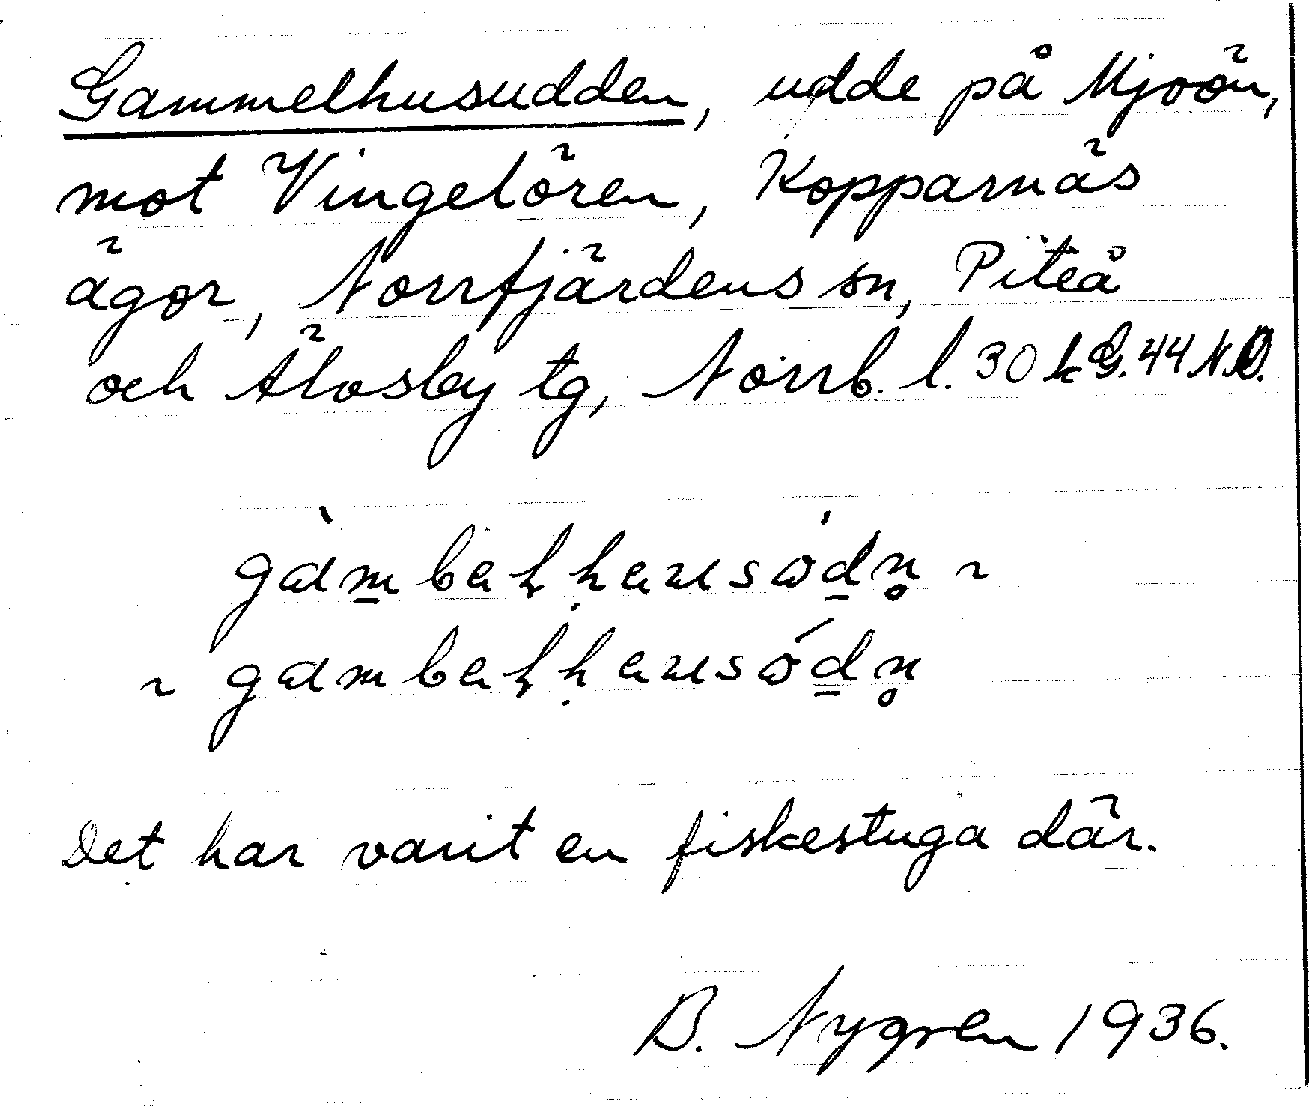 Gammelhusudden, udde på Mjoön,
mot Vingelören, Kopparnäs
ägor, Norrfjärdens sn, Piteå
och Älvsby tg, Norrb. l. 30 k G. 44 N.O.
gàmbaḷḥausódn̥ ~
~ gambaḷḥausódn̥
Det har varit en fiskestuga där.
B. Nygren 1936.